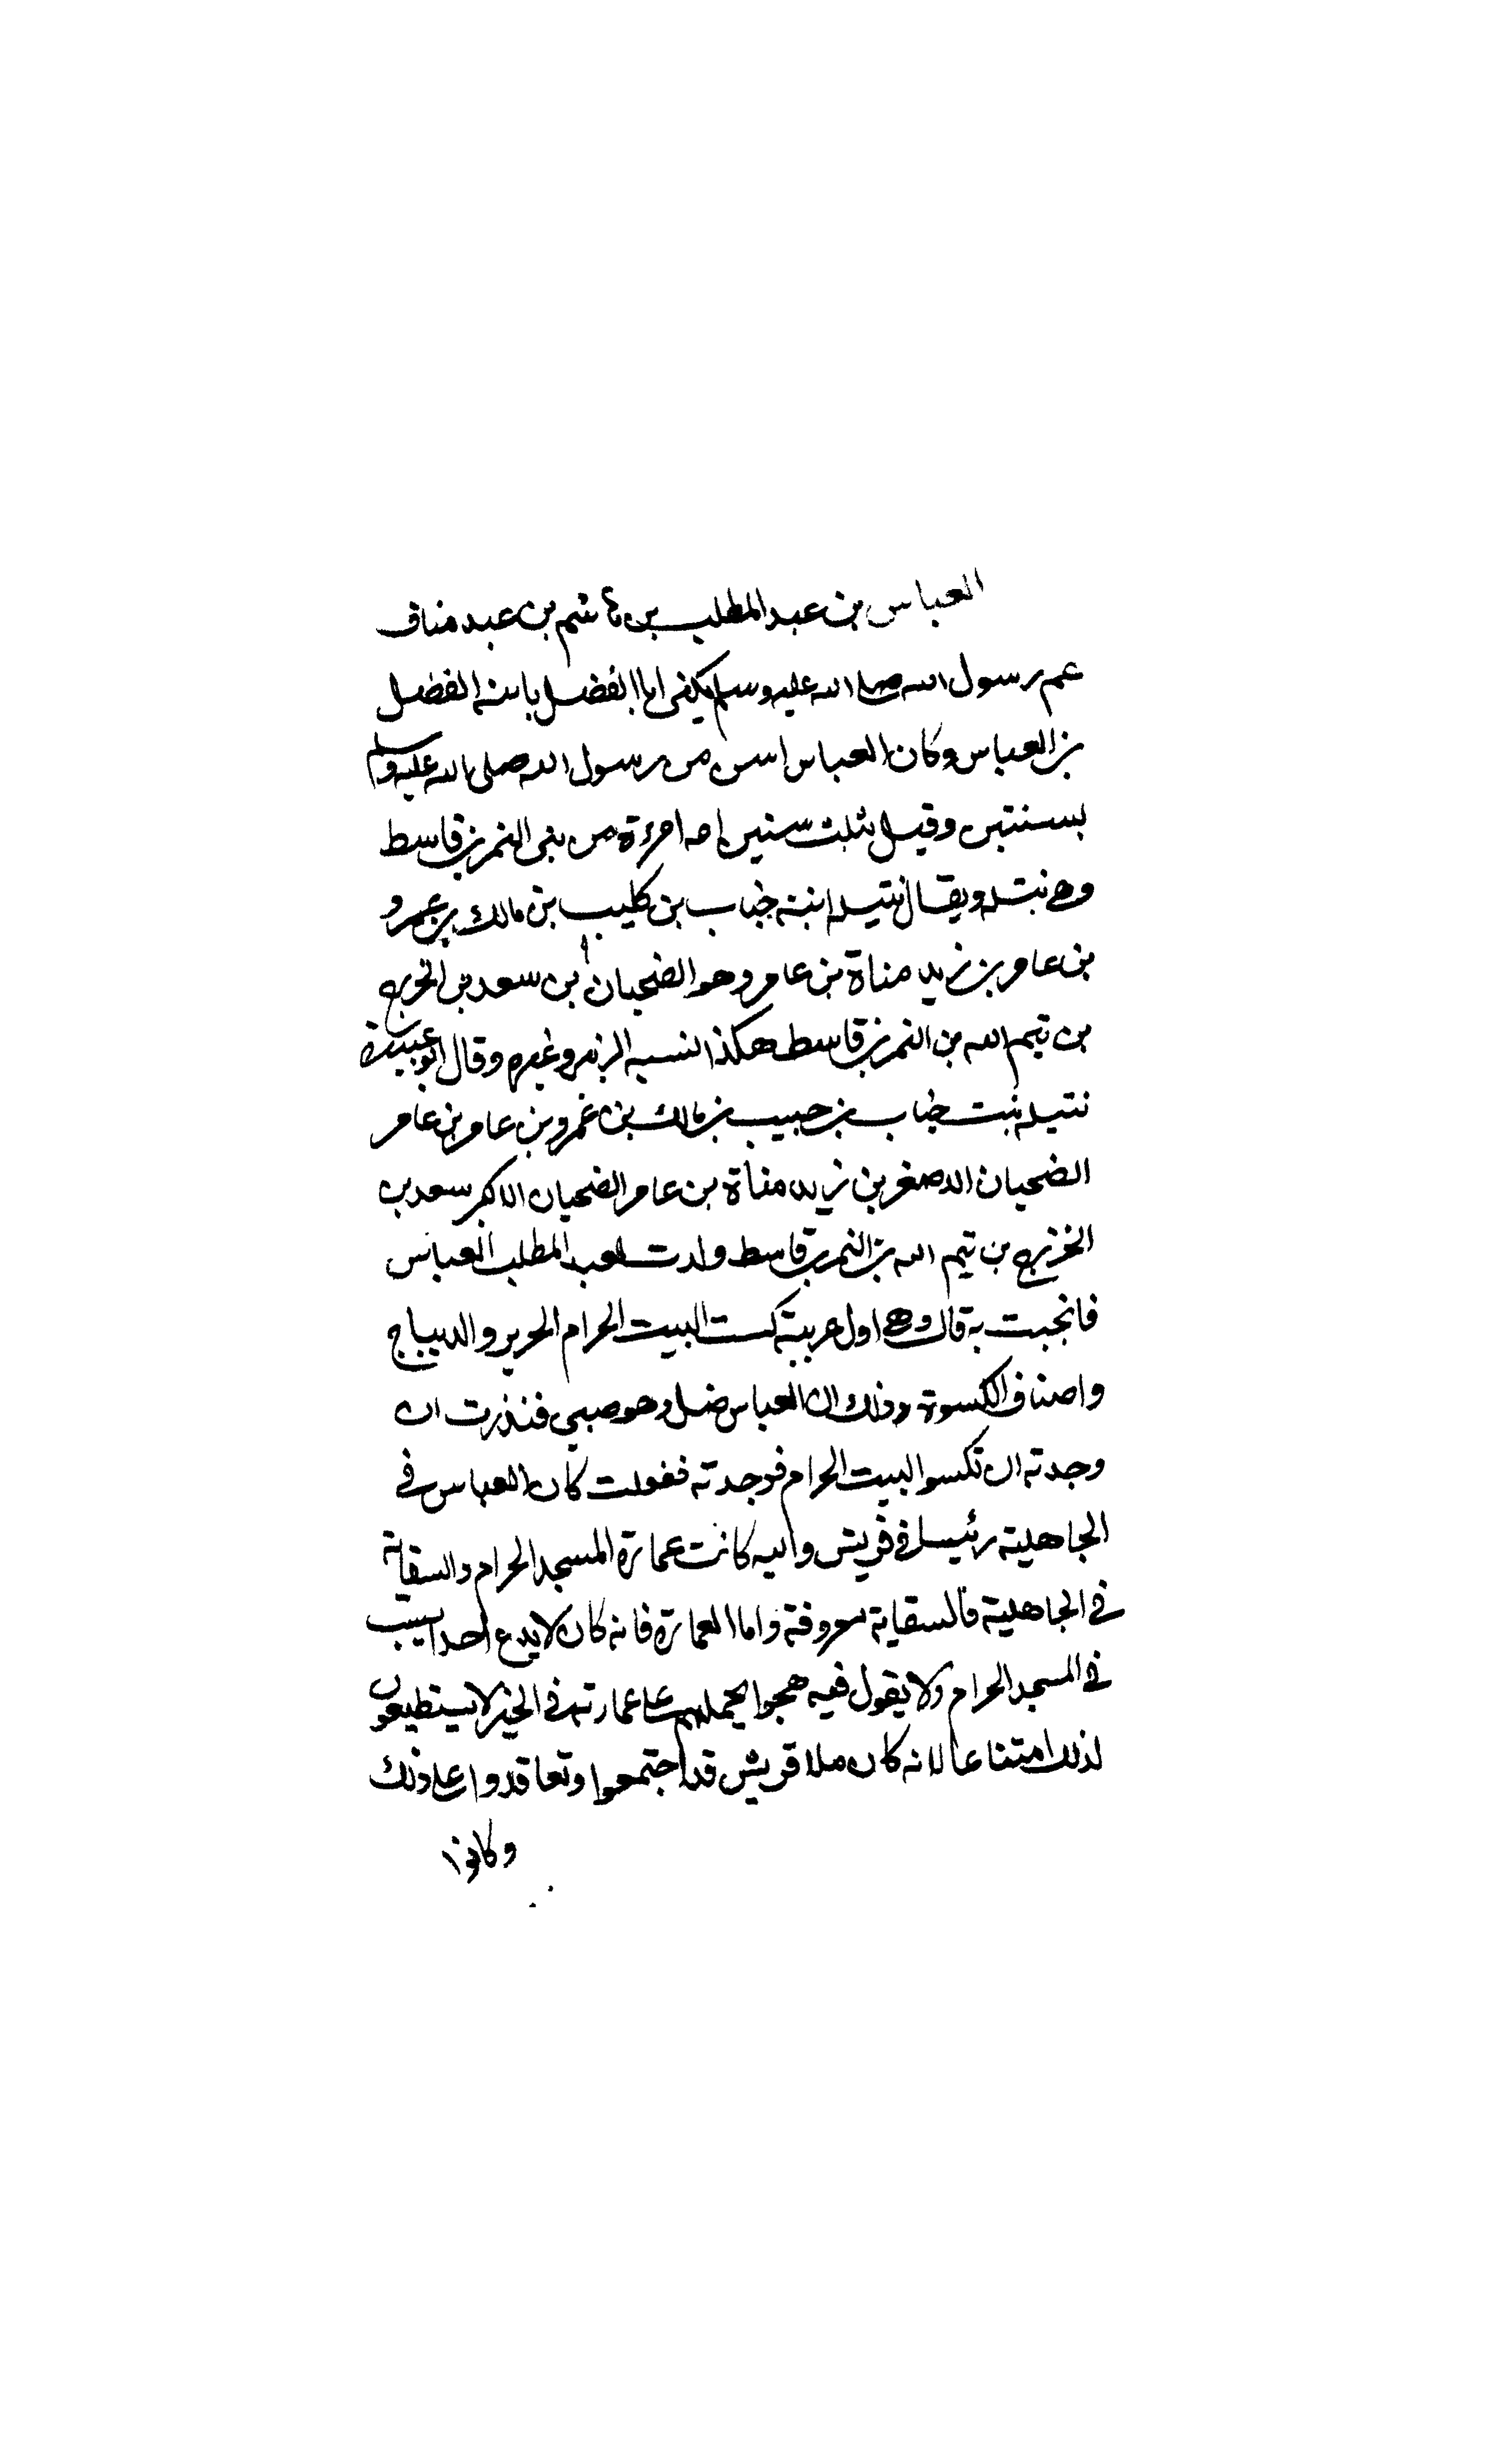 العباس بن عبد المطلب بن هاشم بن عبد مناف
عم رسول الله صلى الله عليه وسلم يكنى ابا الفضل بابنه الفضل
بن العباس وكان العباس اسن من رسول الله صلى الله عليه وسلم
بسنتين وقيل بثلث سنين امه امرءة من بنى النمر بن قاسط
وهى نتله ويقال نتيله ابنة خباب بن كليب بن مالك بن عمرو
بن عامر بن زيد مناة بن عامر وهو الضحيان بن سعد بن الخزرج
بن تيم الله بن النمر بن قاسط هكذا نسبه الزبير وغيره وقال ابو عبيدة
نتيله بنت خباب بن حبيب بن مالك بن عمرو بن عامر بن عامر
الضحيان الاصغر بن زيد مناة بن عامر الضحيان الاكبر سعد بن
الخزرج بن تيم الله بن النمر بن قاسط ولدت لعبد المطلب العباس
فانجبت به قال وهى اول عربية كست البيت الحرام الحرير والديباج
واصناف الكسوة وذلك ان العباس ضل وهو صبي فنذرت ان
وجدته ان تكسوا البيت الحرام فوجدته ففعلت كان العباس فى
الجاهلية رئيسا فى قريش واليه كانت عمارة المسجد الحرام والسقاية
فى الجاهلية فالسقاية معروفة واما العمارة فانه كان لا يدع احدا يسب
فى المسجد الحرام ولا يقول فيه هجوا يحملهم على عمارته فى الخير لا يستطيعون
لذلك امتناعا لانه كان ملا قريش قد اجتمعوا وتعاقدوا على ذلك
وكانوا